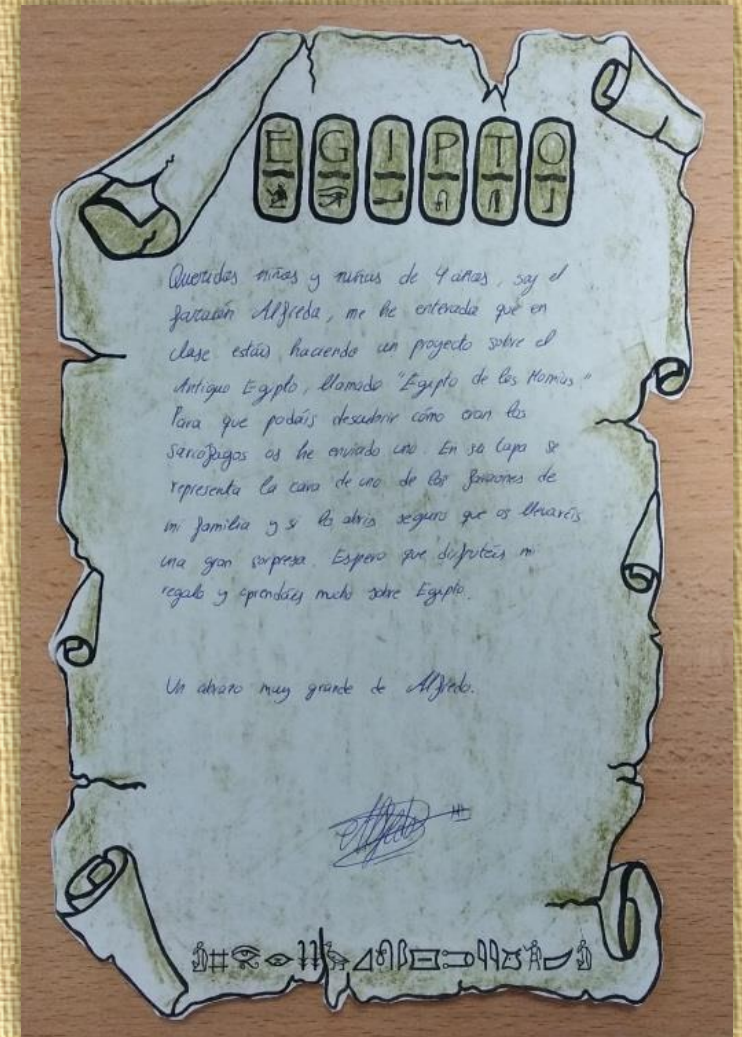 EGIPTO
Queridos niños y niñas de 4 años, soy el
faraón Alfredo, me he enterado que en
clase estáis haciendo un proyecto sobre el
Antiguo Egipto, llamado "Egipto de los Momias."
Para que podáis descubrir cómo eran los
sarcófagos os he enviado uno. En su tapa se
representa la cara de uno de los faraones de
mi familia y si lo abrís seguro que os llevaréis
una gran sorpresa. Espero que disfrutéis mi
regalo y aprendáis mucho sobre Egipto.
Un abrazo muy grande de Alfredo.
Alfredo